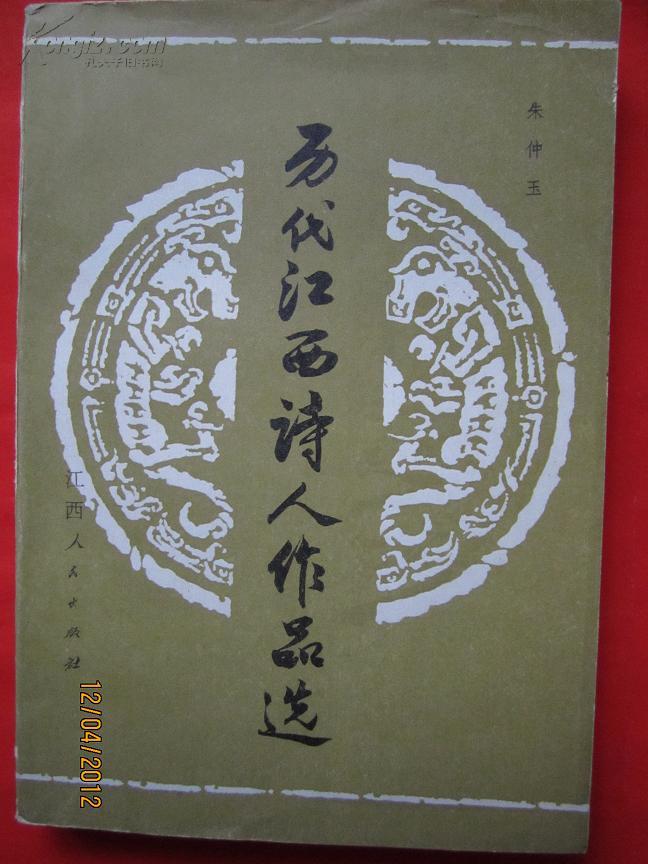 Kongfz.com
孔夫子旧书网
朱仲玉
历代江西诗人作品选
江西人民出版社
12/04/2012